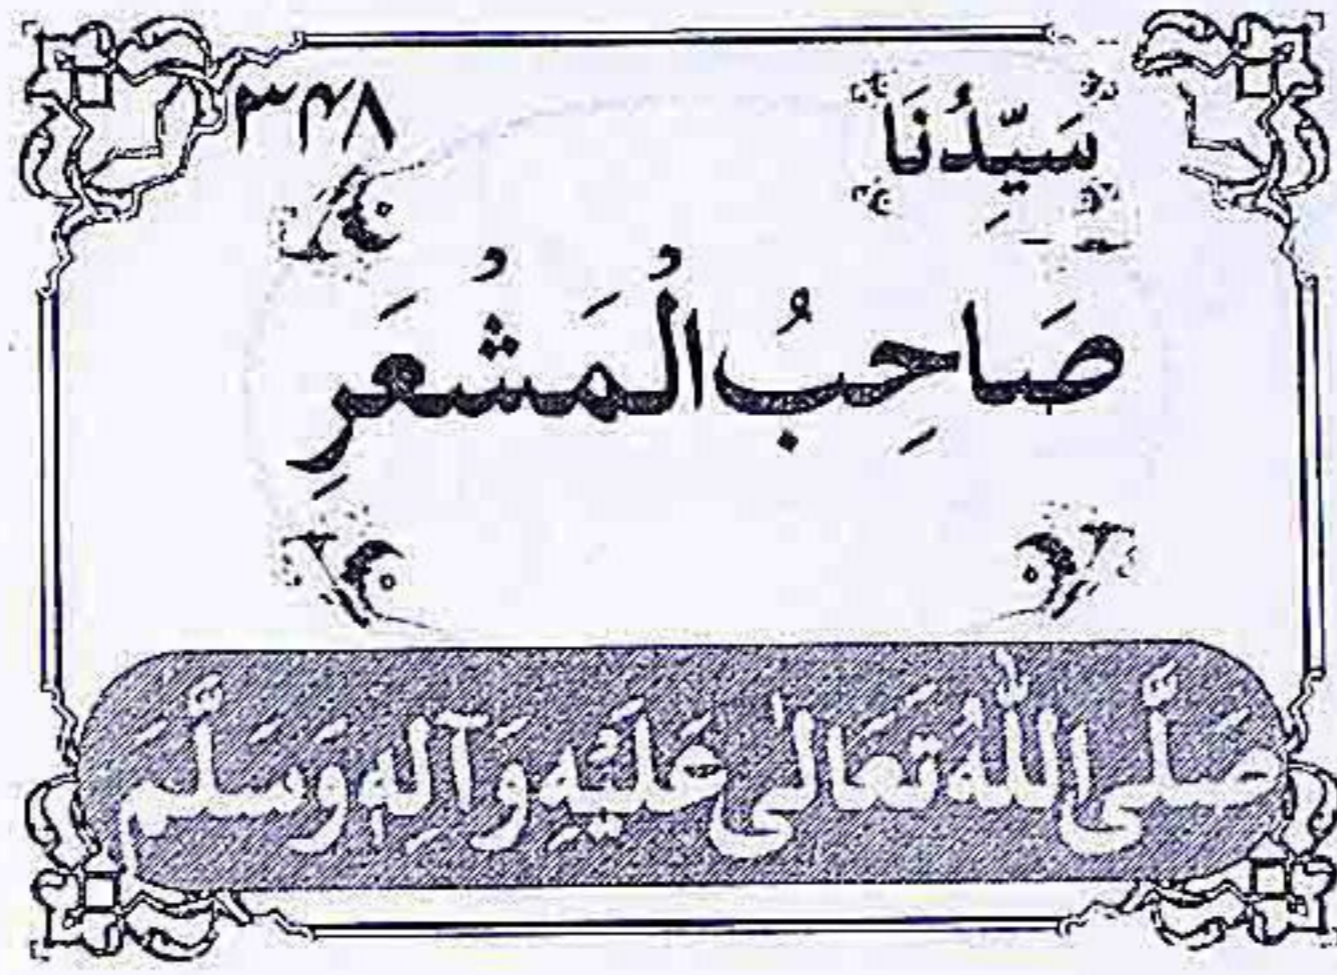 سَيِّدُنَا ٣٤٨
صَاحِبُ الْمَشْعَرِ
صَلَّى اللّٰهُ تَعَالٰى عَلَيْهِ وَآلِهٖ وَسَلَّمَ